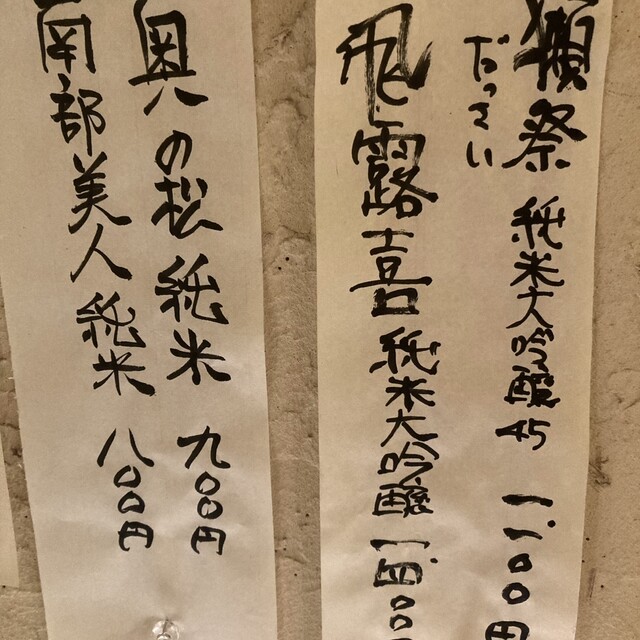 獺祭 純米大吟醸45 一一〇〇円
だっさい
飛露喜 純米大吟醸 一四〇〇
奥の松 純米 九〇〇円
南部美人 純米 八〇〇円